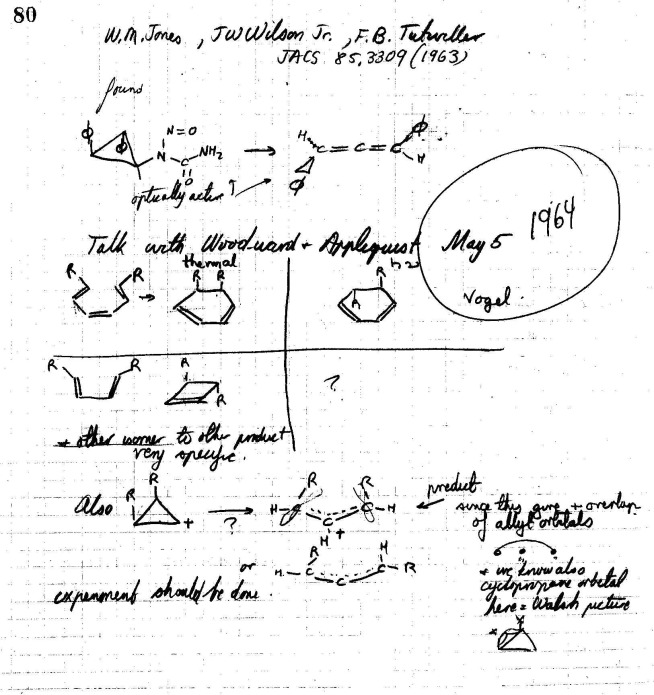 80
W.M. Jones, J W Wilson Jr., F.B. Tutwiller
JACS 85, 3309 (1963)
found
Φ Φ N=O
N C NH₂ → H C=C=C Φ H
O Φ
optically active
Talk with Woodward + Applequist May 5 1964
thermal
R R → R R
hν R R
Vogel.
R R R R
?
+ other isomer to other product
very specific.
Also R R + → ? H C R C H C R H +
product
since this give + overlap
of allyl orbitals
or H C R C C H R
experiment should be done.
+ we know also
cyclopropane orbital
here = Walsh picture